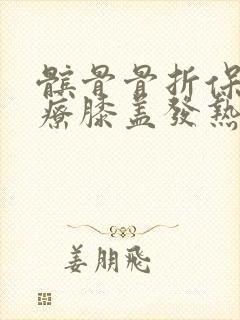 髕骨骨折保
療膝蓋發熱
姜朋飛